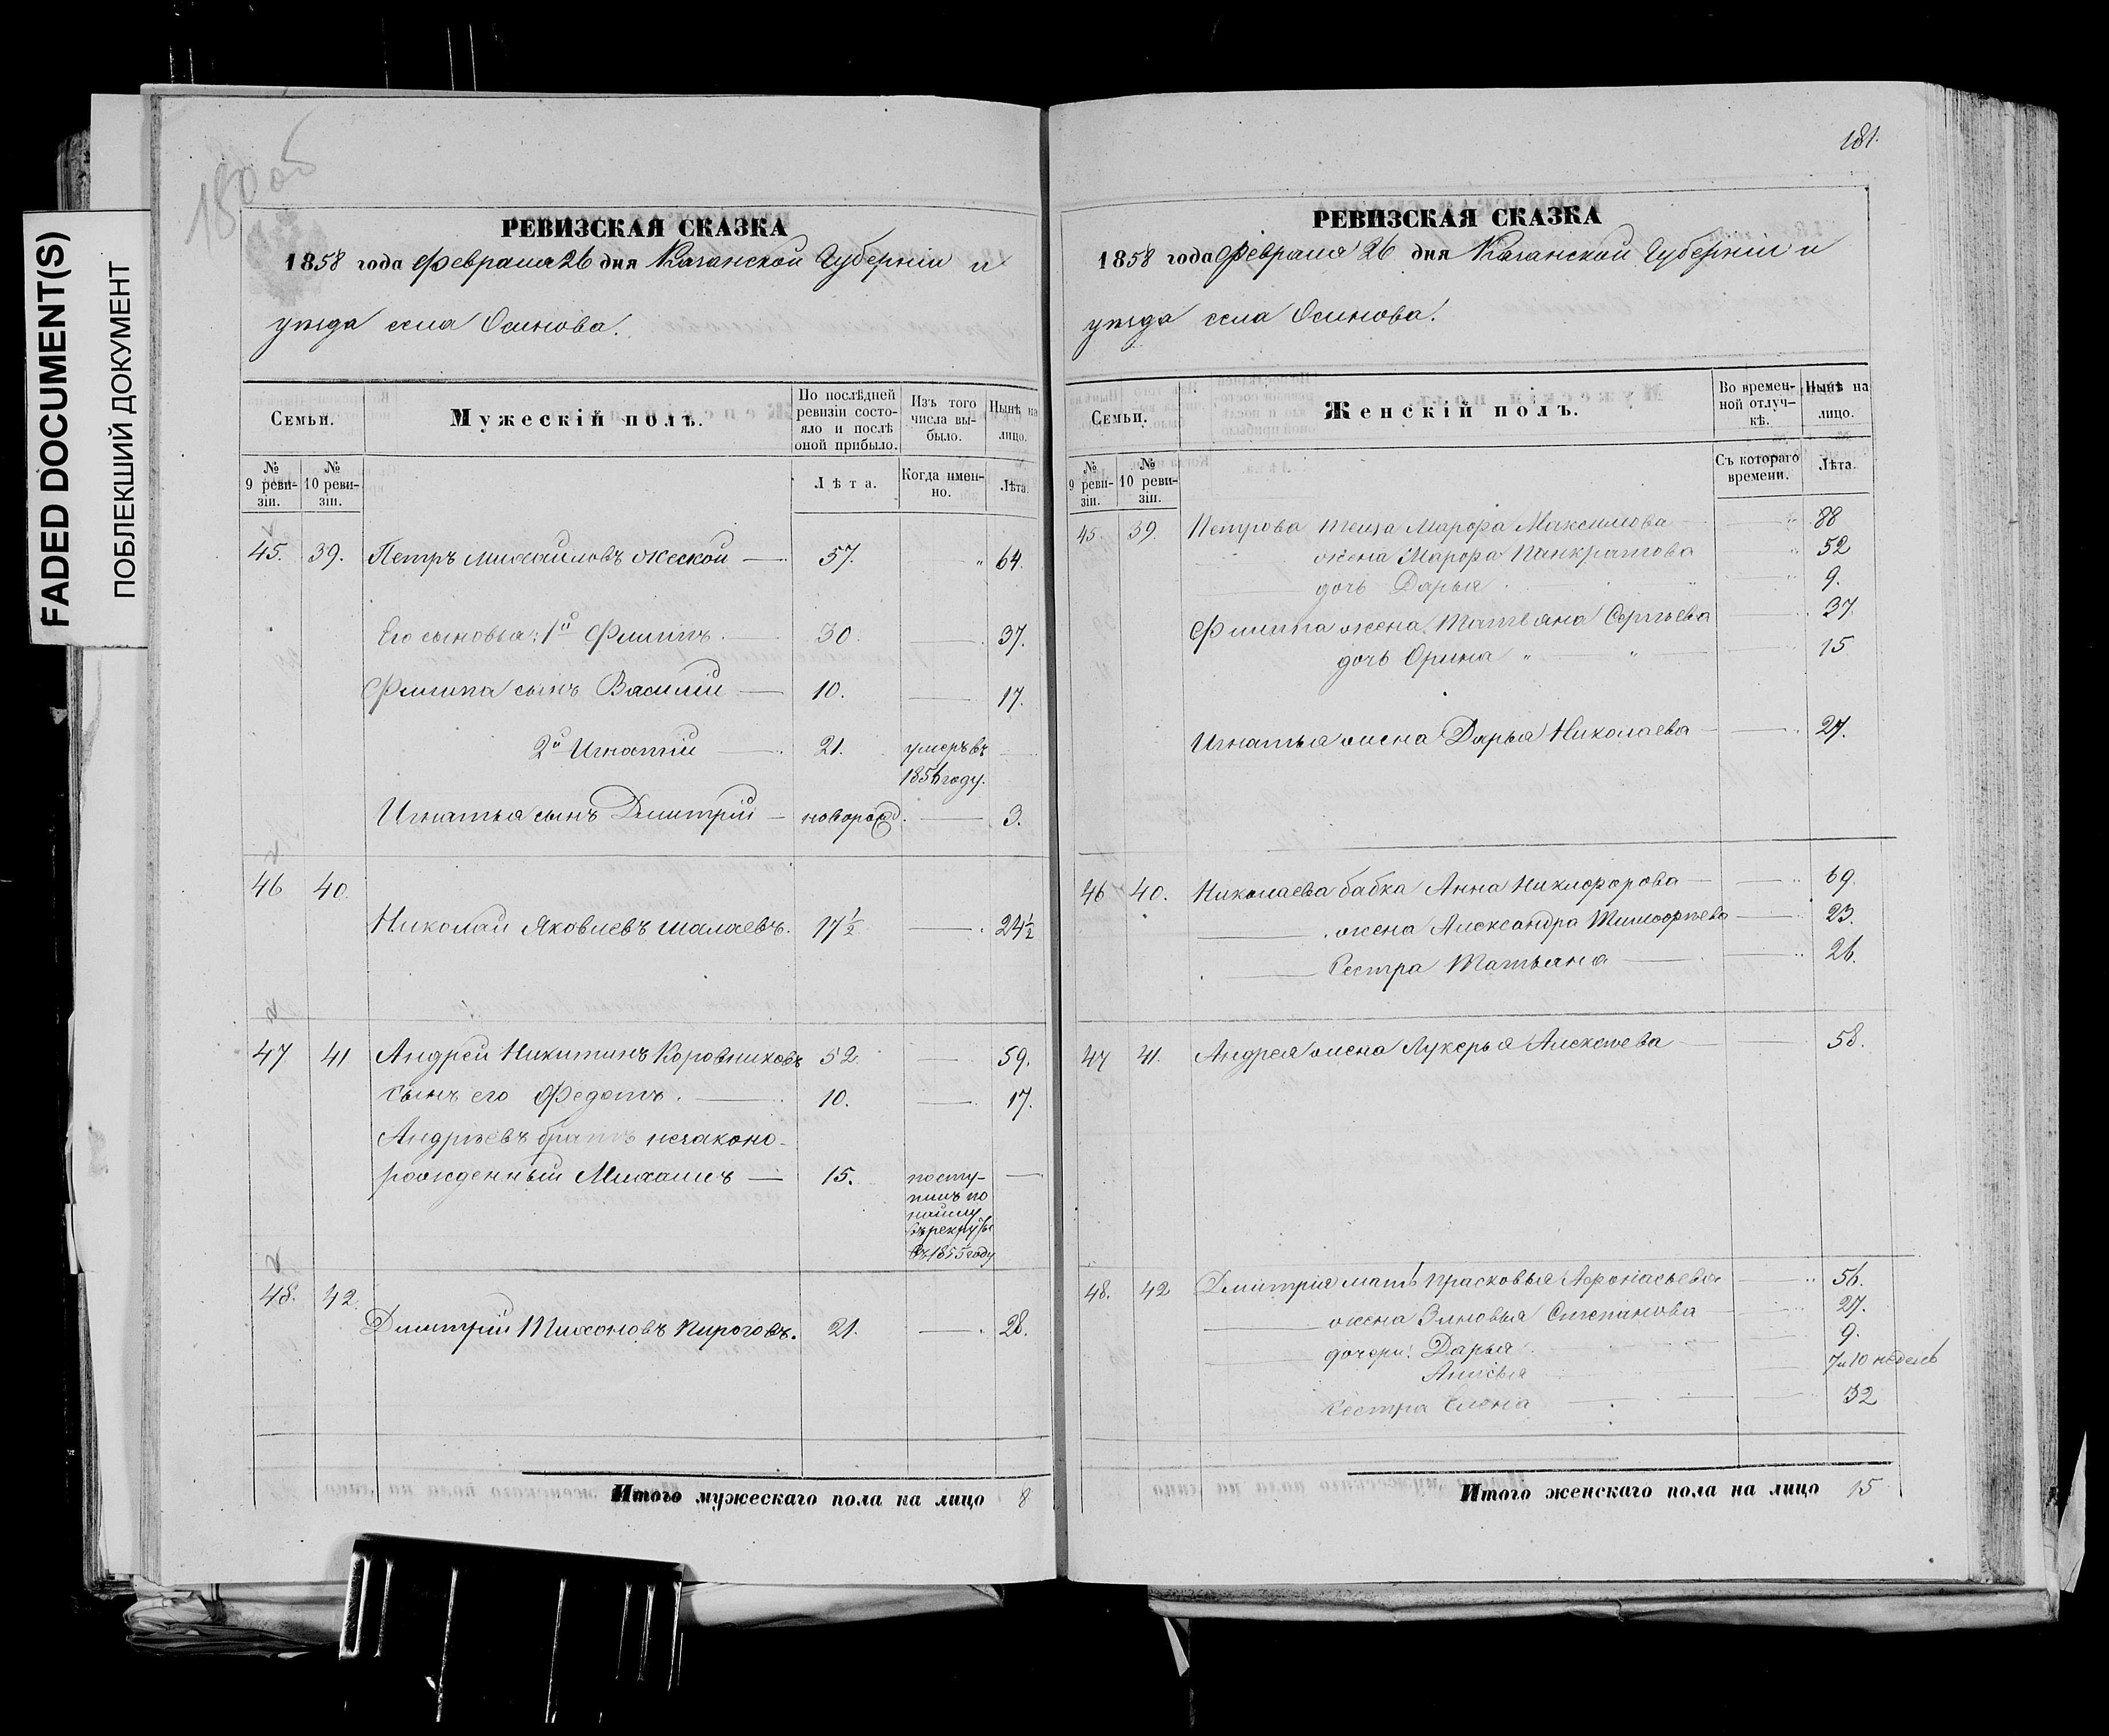 FADED DOCUMENT(S)
ПОБЛЕКШИЙ ДОКУМЕНТ
180 об
РЕВИЗСКАЯ СКАЗКА
1858 года Февраля 26 дня Казанской Губерніи и
уѣзда села Осинова.
Семьи.
Мужескій полъ.
По послѣдней ревизіи состояло и послѣ оной прибыло.
Изъ того числа выбыло.
Нынѣ на лицо.
№ 9 ревизіи.
№ 10 ревизіи.
Лѣта.
Когда именно.
Лѣта.
45. 39. Петръ Михайловъ 57. " 64.
Его сыновья: 1й Филипъ. 30. 37.
Филипа сынъ Василій 10. 17.
2й Игнатій 21. умеръ въ
1856 году.
Игнатья сынъ Дмитрій новорожд. 3.
46 40.
Николай Яковлевъ Шалаевъ. 17½ 24½
47 41 Андрей Никитинъ Коровниковъ 52 59.
сынъ его Федотъ. 10. 17.
Андрѣевъ братъ незаконо-
рожденный Михаилъ 15. посту-
пилъ по
найму
въ рекруты
въ 1855 году
48. 42.
Дмитрій Тихоновъ Пироговъ. 21. 28.
Итого мужескаго пола на лицо 8
181.
РЕВИЗСКАЯ СКАЗКА
1858 года Февраля 26 дня Казанской Губерніи и
уѣзда села Осинова.
Семьи.
Женскій полъ.
Во временной отлучкѣ.
Нынѣ на лицо.
№ 9 ревизіи.
№ 10 ревизіи.
Съ котораго времени.
Лѣта.
45. 39. Петрова теща Марфа Максимова " 88
жена Марфа Панкратова " 52
дочь Дарья " 9.
Филипа жена Татьяна Сергѣева 37
дочь Орина " " 15
Игнатья жена Дарья Николаева 27.
46 40. Николаева бабка Анна Никифорова 69.
жена Александра Тимофѣева 23.
Сестра Татьяна 26.
47 41. Андрея жена Лукерья Алексѣева 58.
48. 42 Дмитрія мать Прасковья Афонасьева 56.
жена Зиновья Степанова 27.
дочери: Дарья 9.
Анисья 7 и 10 недель
сестра Елена 32
Итого женскаго пола на лицо 15